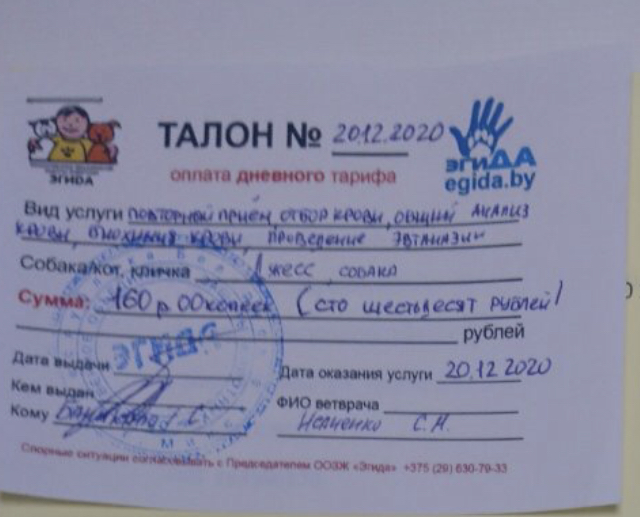 ЭГИДА
ТАЛОН № 20.12.2020
эгиДА
оплата дневного тарифа
egida.by
Вид услуги повторный приём, отбор крови, общий анализ
крови, биохимия крови, проведение эвтаназии
Собака/кот, кличка Джесс, собака
Сумма: 160 р 00 копеек (сто шестьдесят рублей)
рублей
Дата выдачи
ЭГИДА
Дата оказания услуги 20.12.2020
Кем выдан
ФИО ветврача
Кому С.
С.Н.
Спорные ситуации согласовывать с Председателем ООЗЖ «Эгида» +375 (29) 630-79-33